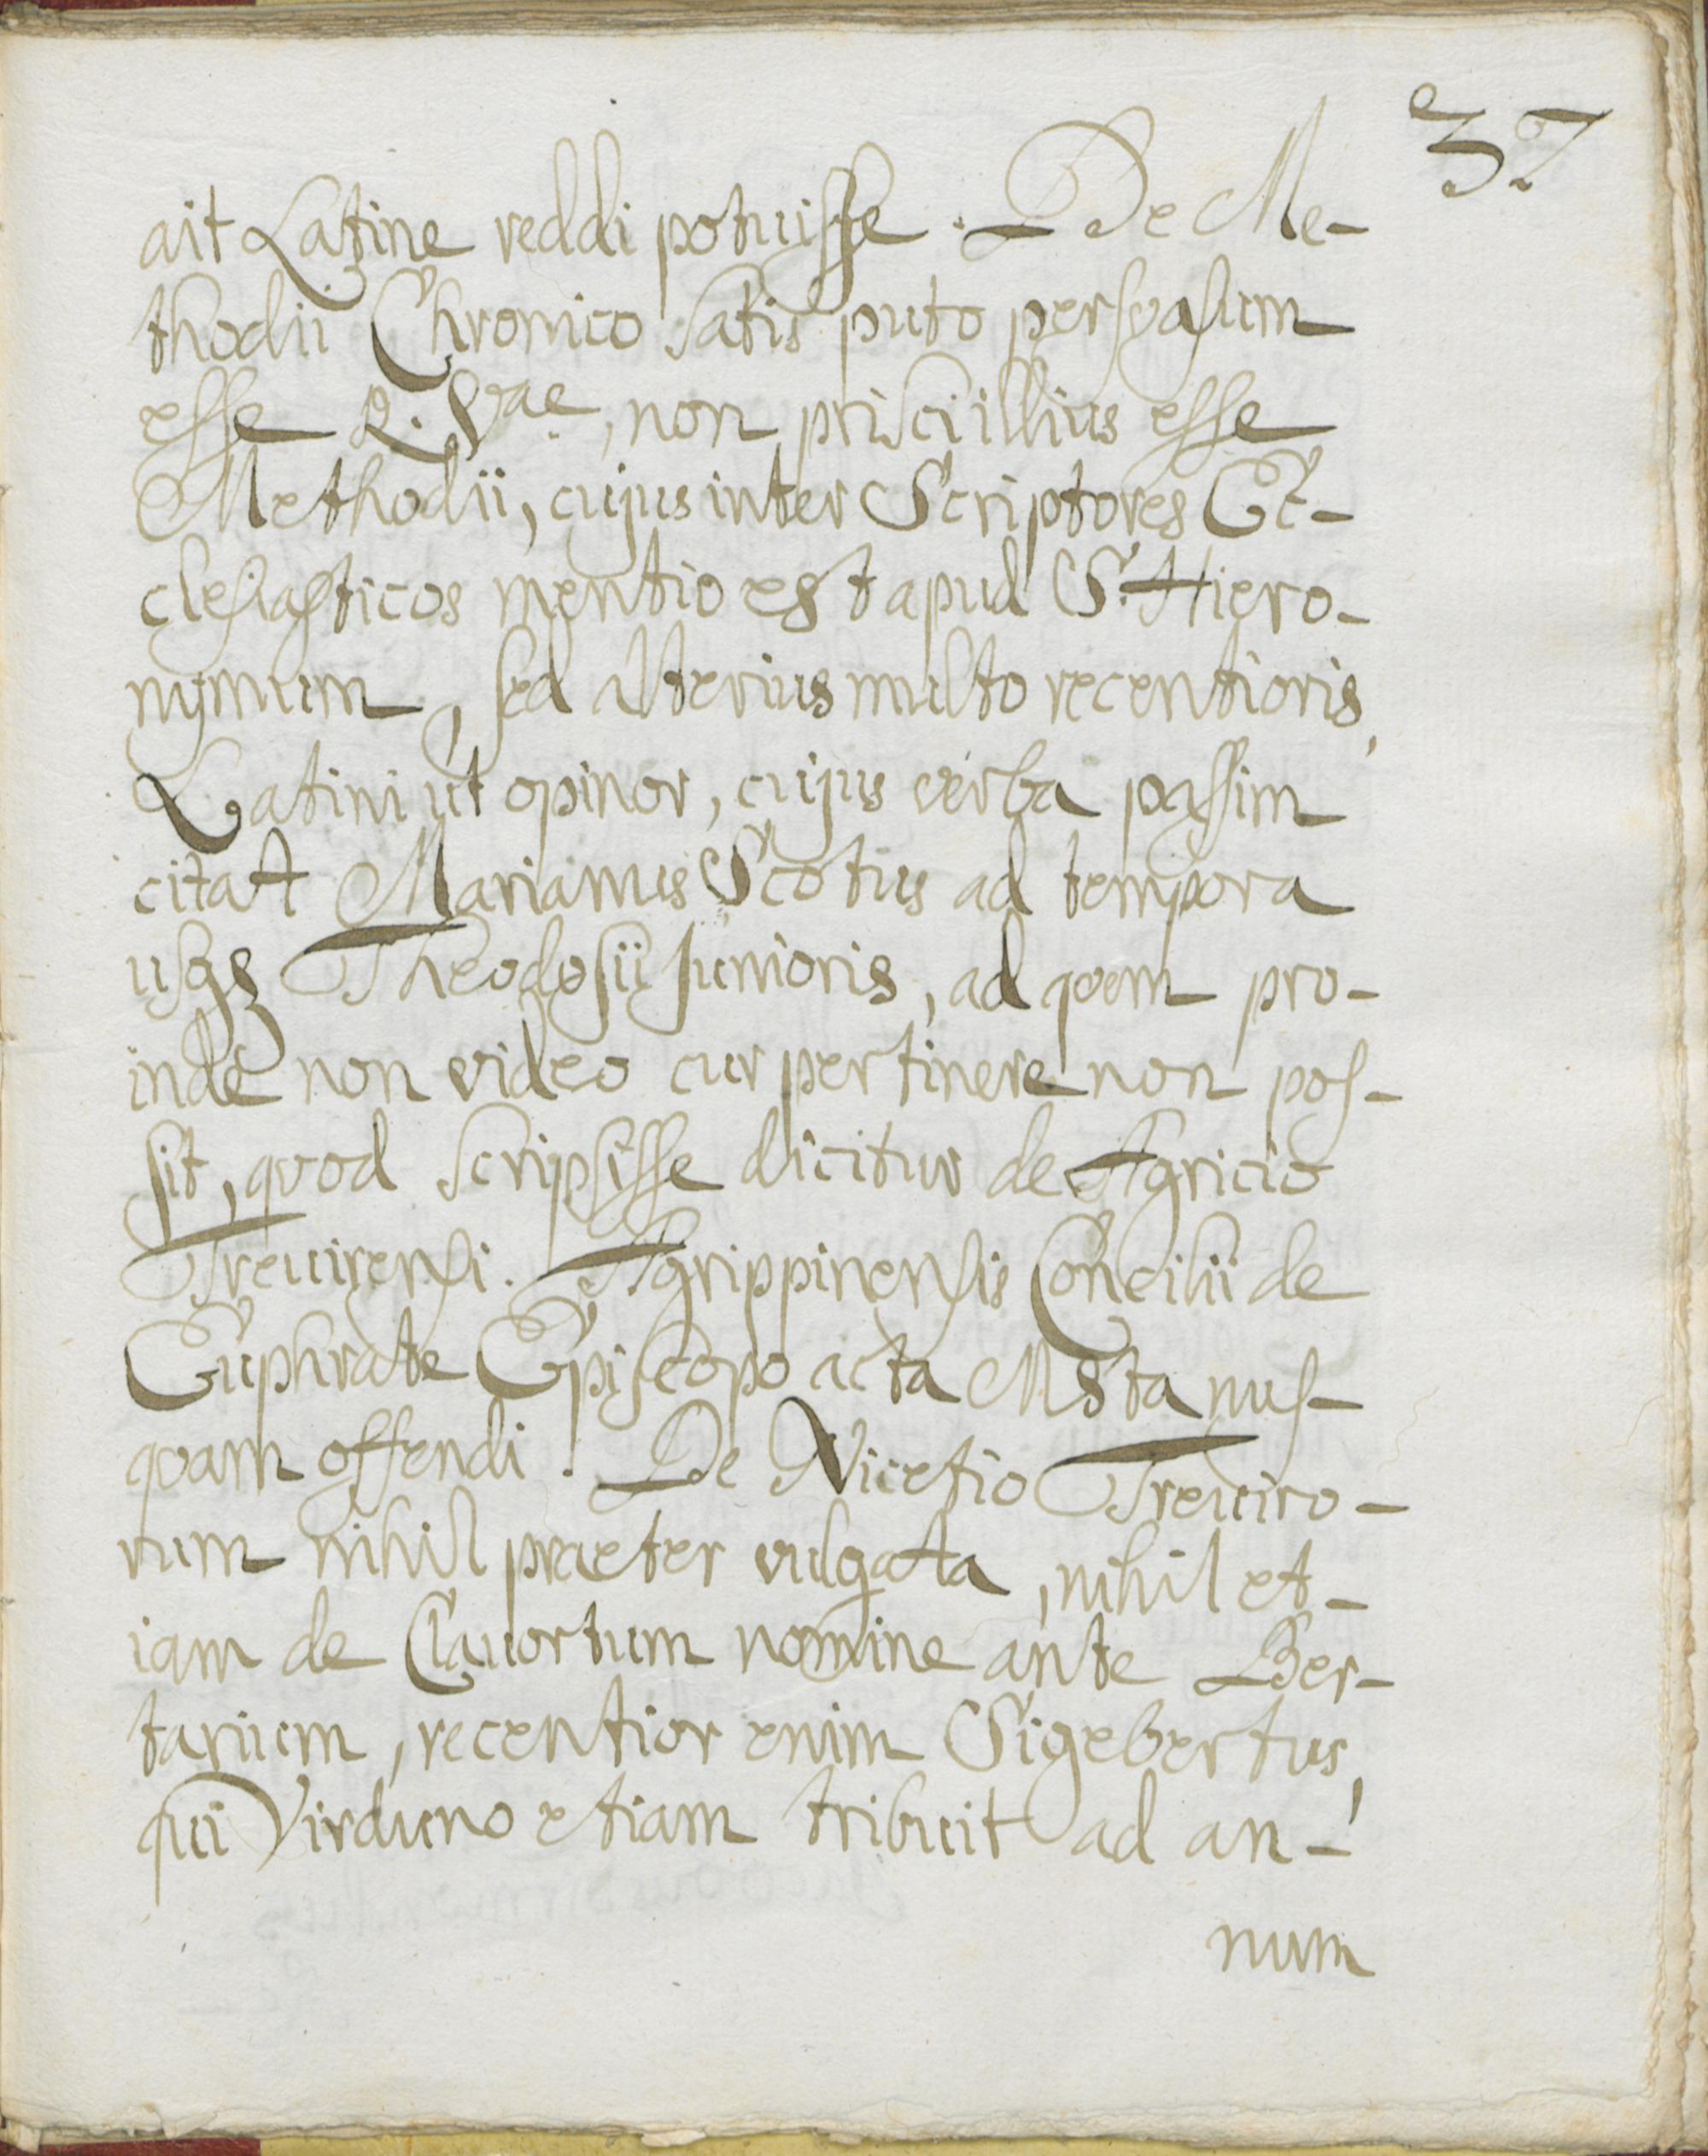 37
ait Latine reddi potuisse. De Me-
thodii Chronico satis puto persvasum
esse R. Vae., non prisci illius esse
Methodii, cujus inter Scriptores Ec-
clesiasticos mentio est apud S. Hiero-
nymum, sed alterius multo recentioris,
Latini ut opinor, cujus verba passim
citat Marianus Scotus ad tempora
usq; Theodosii Junioris, ad qvem pro-
inde non video cur pertinere non pos-
sit, qvod scripsisse dicitur de Agricio
Trevirensi. Agrippinensis Concilii de
Euphrate Episcopo acta Msta nus-
qvam offendi. De Nicetio Treviro-
rum nihil praeter vulgata, nihil et-
iam de Clavortum nomine ante Ber-
tarium, recentior enim Sigebertus,
qui Virduno etiam tribuit ad an-
num